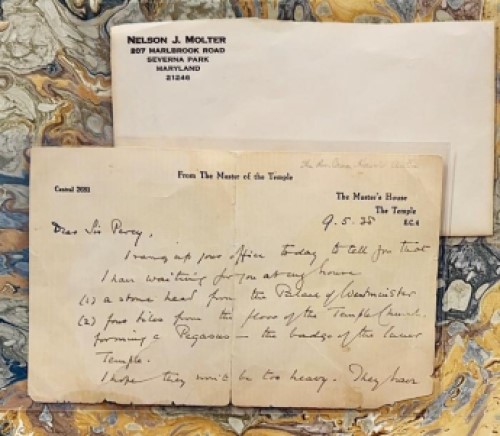 NELSON J. MOLTER
207 MARLBROOK ROAD
SEVERNA PARK
MARYLAND
21246
From The Master of the Temple
Central 2693
The Master's House
The Temple
E.C.4
9.5.35
Dear Sir Percy,
I rang up your office today to tell you that
I have waiting for you at my house
(1) a stone head from the Palace of Westminster
(2) four tiles from the floor of the Temple Church,
forming a Pegasus – the badge of the Inner
Temple.
I hope they won't be too heavy. They have